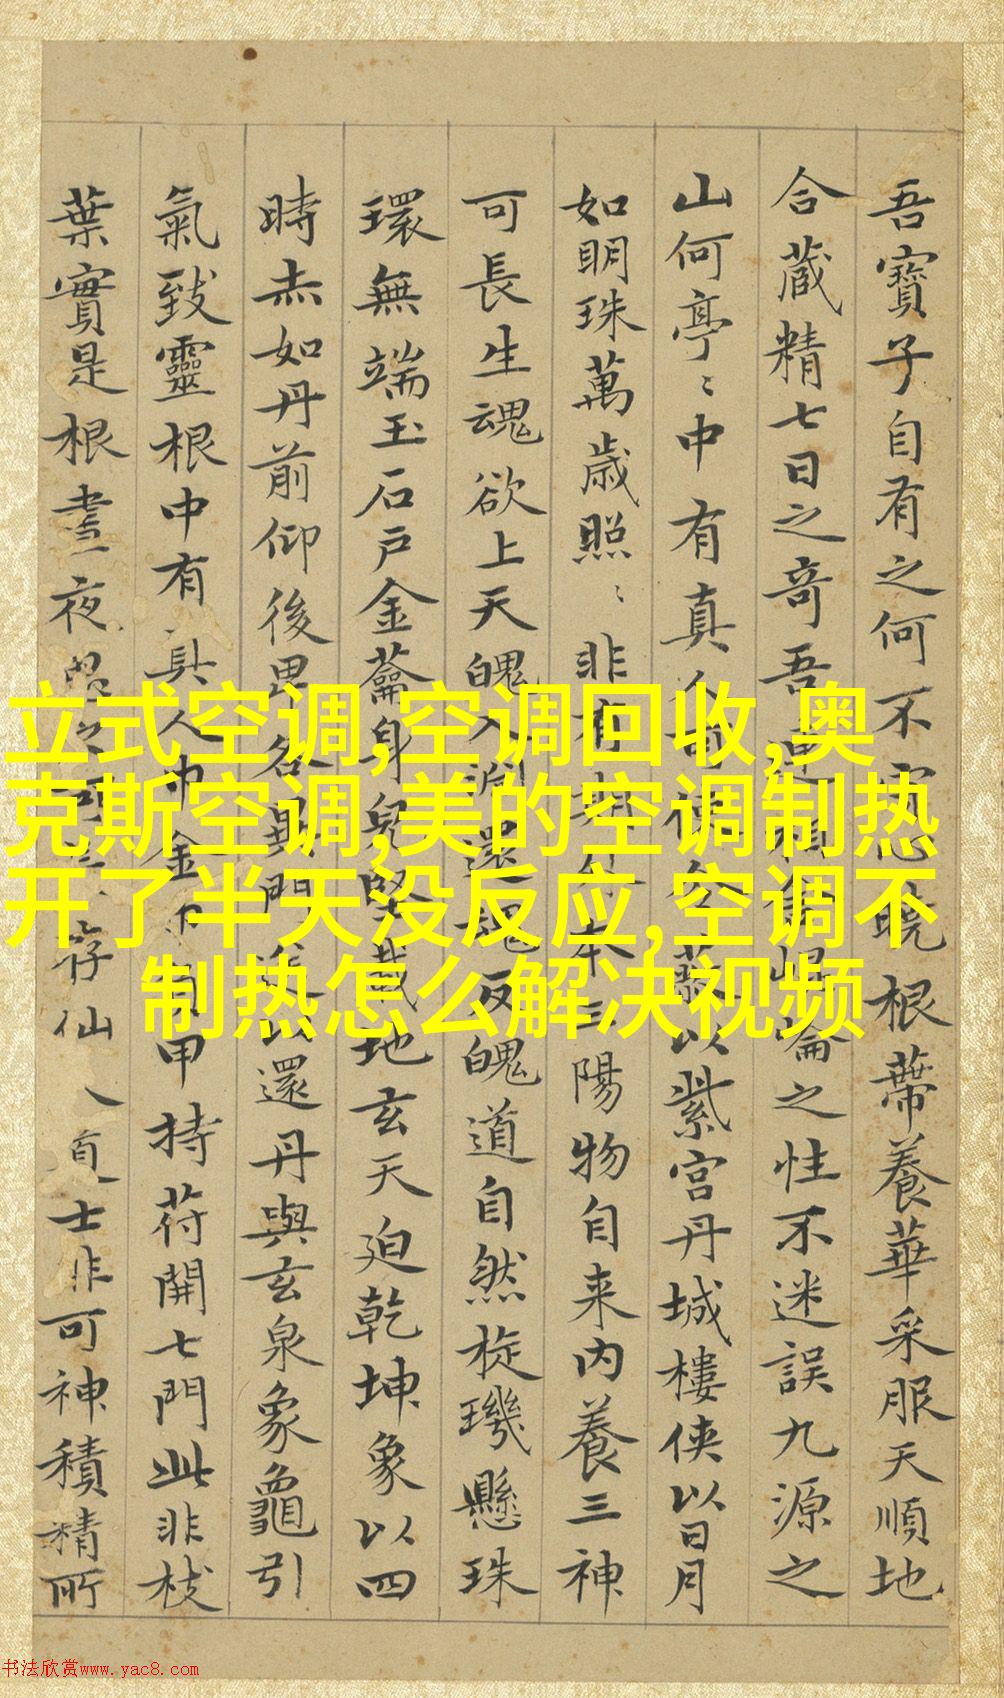 吾寶子自有之何不守心曉根蒂養華采服天順地
合藏精七日之奇吾是相舍崐崘之性不迷誤九源之
山何亭〻中有真人可使令蔽以紫宮丹城樓俠以日月
如明珠萬歲照〻非有期外本三陽物自来內養三神
可長生魂欲上天魄入淵還魂反魄道自然旋璣懸珠
環無端玉石戶金籥身兒堅載地玄天迫乾坤象以四
時赤如丹前仰後畀各異門送以還丹與玄泉象龜引
氣致靈根中有真人巾金巾甲持苻開七門此非枝
葉實是根晝夜思之可存仙人道士非可神積精所
立式空调,空调回收,奥
克斯空调,美的空调制热
开了半天没反应,空调不
制热怎么解决视频
书法欣赏www.yac8.com